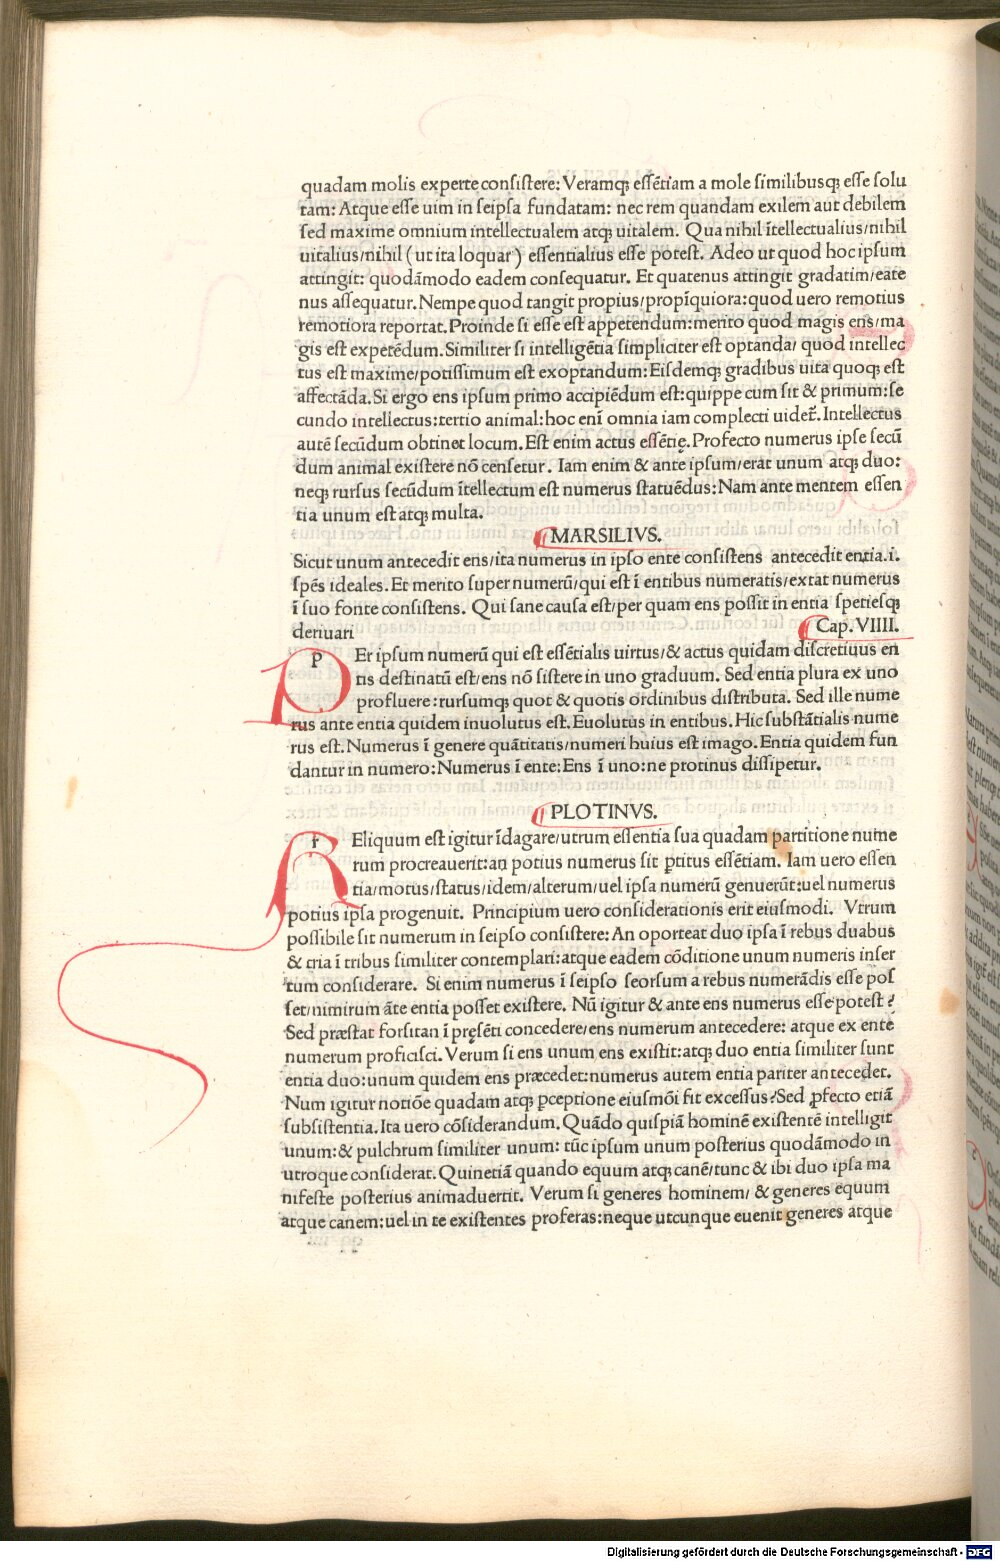 quadam molis experte consistere: Veramqꝫ essētiam a mole similibusqꝫ esse solu
tam: Atque esse uim in seipsa fundatam: nec rem quandam exilem aut debilem
sed maxime omnium intellectualem atqꝫ uitalem. Qua nihil ītellectualius/nihil
uitalius/nihil (ut ita loquar) essentialius esse potest. Adeo ut quod hoc ipsum
attingit: quodāmodo eadem consequatur. Et quatenus attingit gradatim/eate
nus assequatur. Nempe quod tangit propius/propīquiora: quod uero remotius
remotiora reportat. Proinde si esse est appetendum: merito quod magis ens/ma
gis est expetēdum. Similiter si intelligētia simpliciter est optanda/ quod intellec
tus est maxime/potissimum est exoptandum: Eisdemqꝫ gradibus uita quoqꝫ est
affectāda. Si ergo ens ipsum primo accipiēdum est: quippe cum sit & primum: se
cundo intellectus: tertio animal: hoc enī omnia iam complecti uidet̄. Intellectus
autē secūdum obtinet locum. Est enim actus essētię. Profecto numerus ipse secū
dum animal existere nō censetur. Iam enim & ante ipsum/erat unum atqꝫ duo:
neqꝫ rursus secūdum ītellectum est numerus statuēdus: Nam ante mentem essen
tia unum est atqꝫ multa.
MARSILIVS.
Sicut unum antecedit ens/ita numerus in ipso ente consistens antecedit entia.i.
spēs ideales. Et merito super numerū/qui est ī entibus numeratis/extat numerus
ī suo fonte consistens. Qui sane causa est/per quam ens possit in entia spetiesqꝫ
deriuari
Cap. VIIII.
PEr ipsum numerū qui est essētialis uirtus/& actus quidam discretiuus en
tis destinatū est/ens nō sistere in uno graduum. Sed entia plura ex uno
profluere: rursumqꝫ quot & quotis ordinibus distributa. Sed ille nume
rus ante entia quidem inuolutus est. Euolutus in entibus. Hic substātialis nume
rus est. Numerus ī genere quātitatis/numeri huius est imago. Entia quidem fun
dantur in numero: Numerus ī ente: Ens ī uno: ne protinus dissipetur.
PLOTINVS.
REliquum est igitur īdagare/utrum essentia sua quadam partitione nume
rum procreauerit: an potius numerus sit ꝑtitus essētiam. Iam uero essen
tia/motus/status/idem/alterum/uel ipsa numerū genuerūt: uel numerus
potius ipsa progenuit. Principium uero considerationis erit eiusmodi. Vtrum
possibile sit numerum in seipso consistere: An oporteat duo ipsa ī rebus duabus
& tria ī tribus similiter contemplari: atque eadem cōditione unum numeris inser
tum considerare. Si enim numerus ī seipso seorsum a rebus numerādis esse pos
set/nimirum āte entia posset existere. Nū igitur & ante ens numerus esse potest?
Sed præstat forsitan ī pręsēti concedere/ens numerum antecedere: atque ex ente
numerum proficisci. Verum si ens unum ens existit: atqꝫ duo entia similiter sunt
entia duo: unum quidem ens præcedet: numerus autem entia pariter antecedet.
Num igitur notiōe quadam atqꝫ ꝑceptione eiusmōi fit excessus? Sed ꝓfecto etiā
subsistentia. Ita uero cōsiderandum. Quādo quispiā hominē existentē intelligit
unum: & pulchrum similiter unum: tūc ipsum unum posterius quodāmodo in
utroque considerat. Quinetiā quando equum atqꝫ canē/tunc & ibi duo ipsa ma
nifeste posterius animaduertit. Verum si generes hominem/ & generes equum
atque canem: uel in te existentes proferas: neque utcunque euenit generes atque
Digitalisierung gefördert durch die Deutsche Forschungsgemeinschaft - DFG